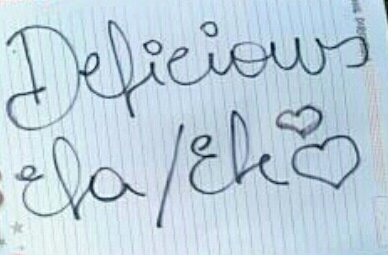 Delicious
Ela/Ele